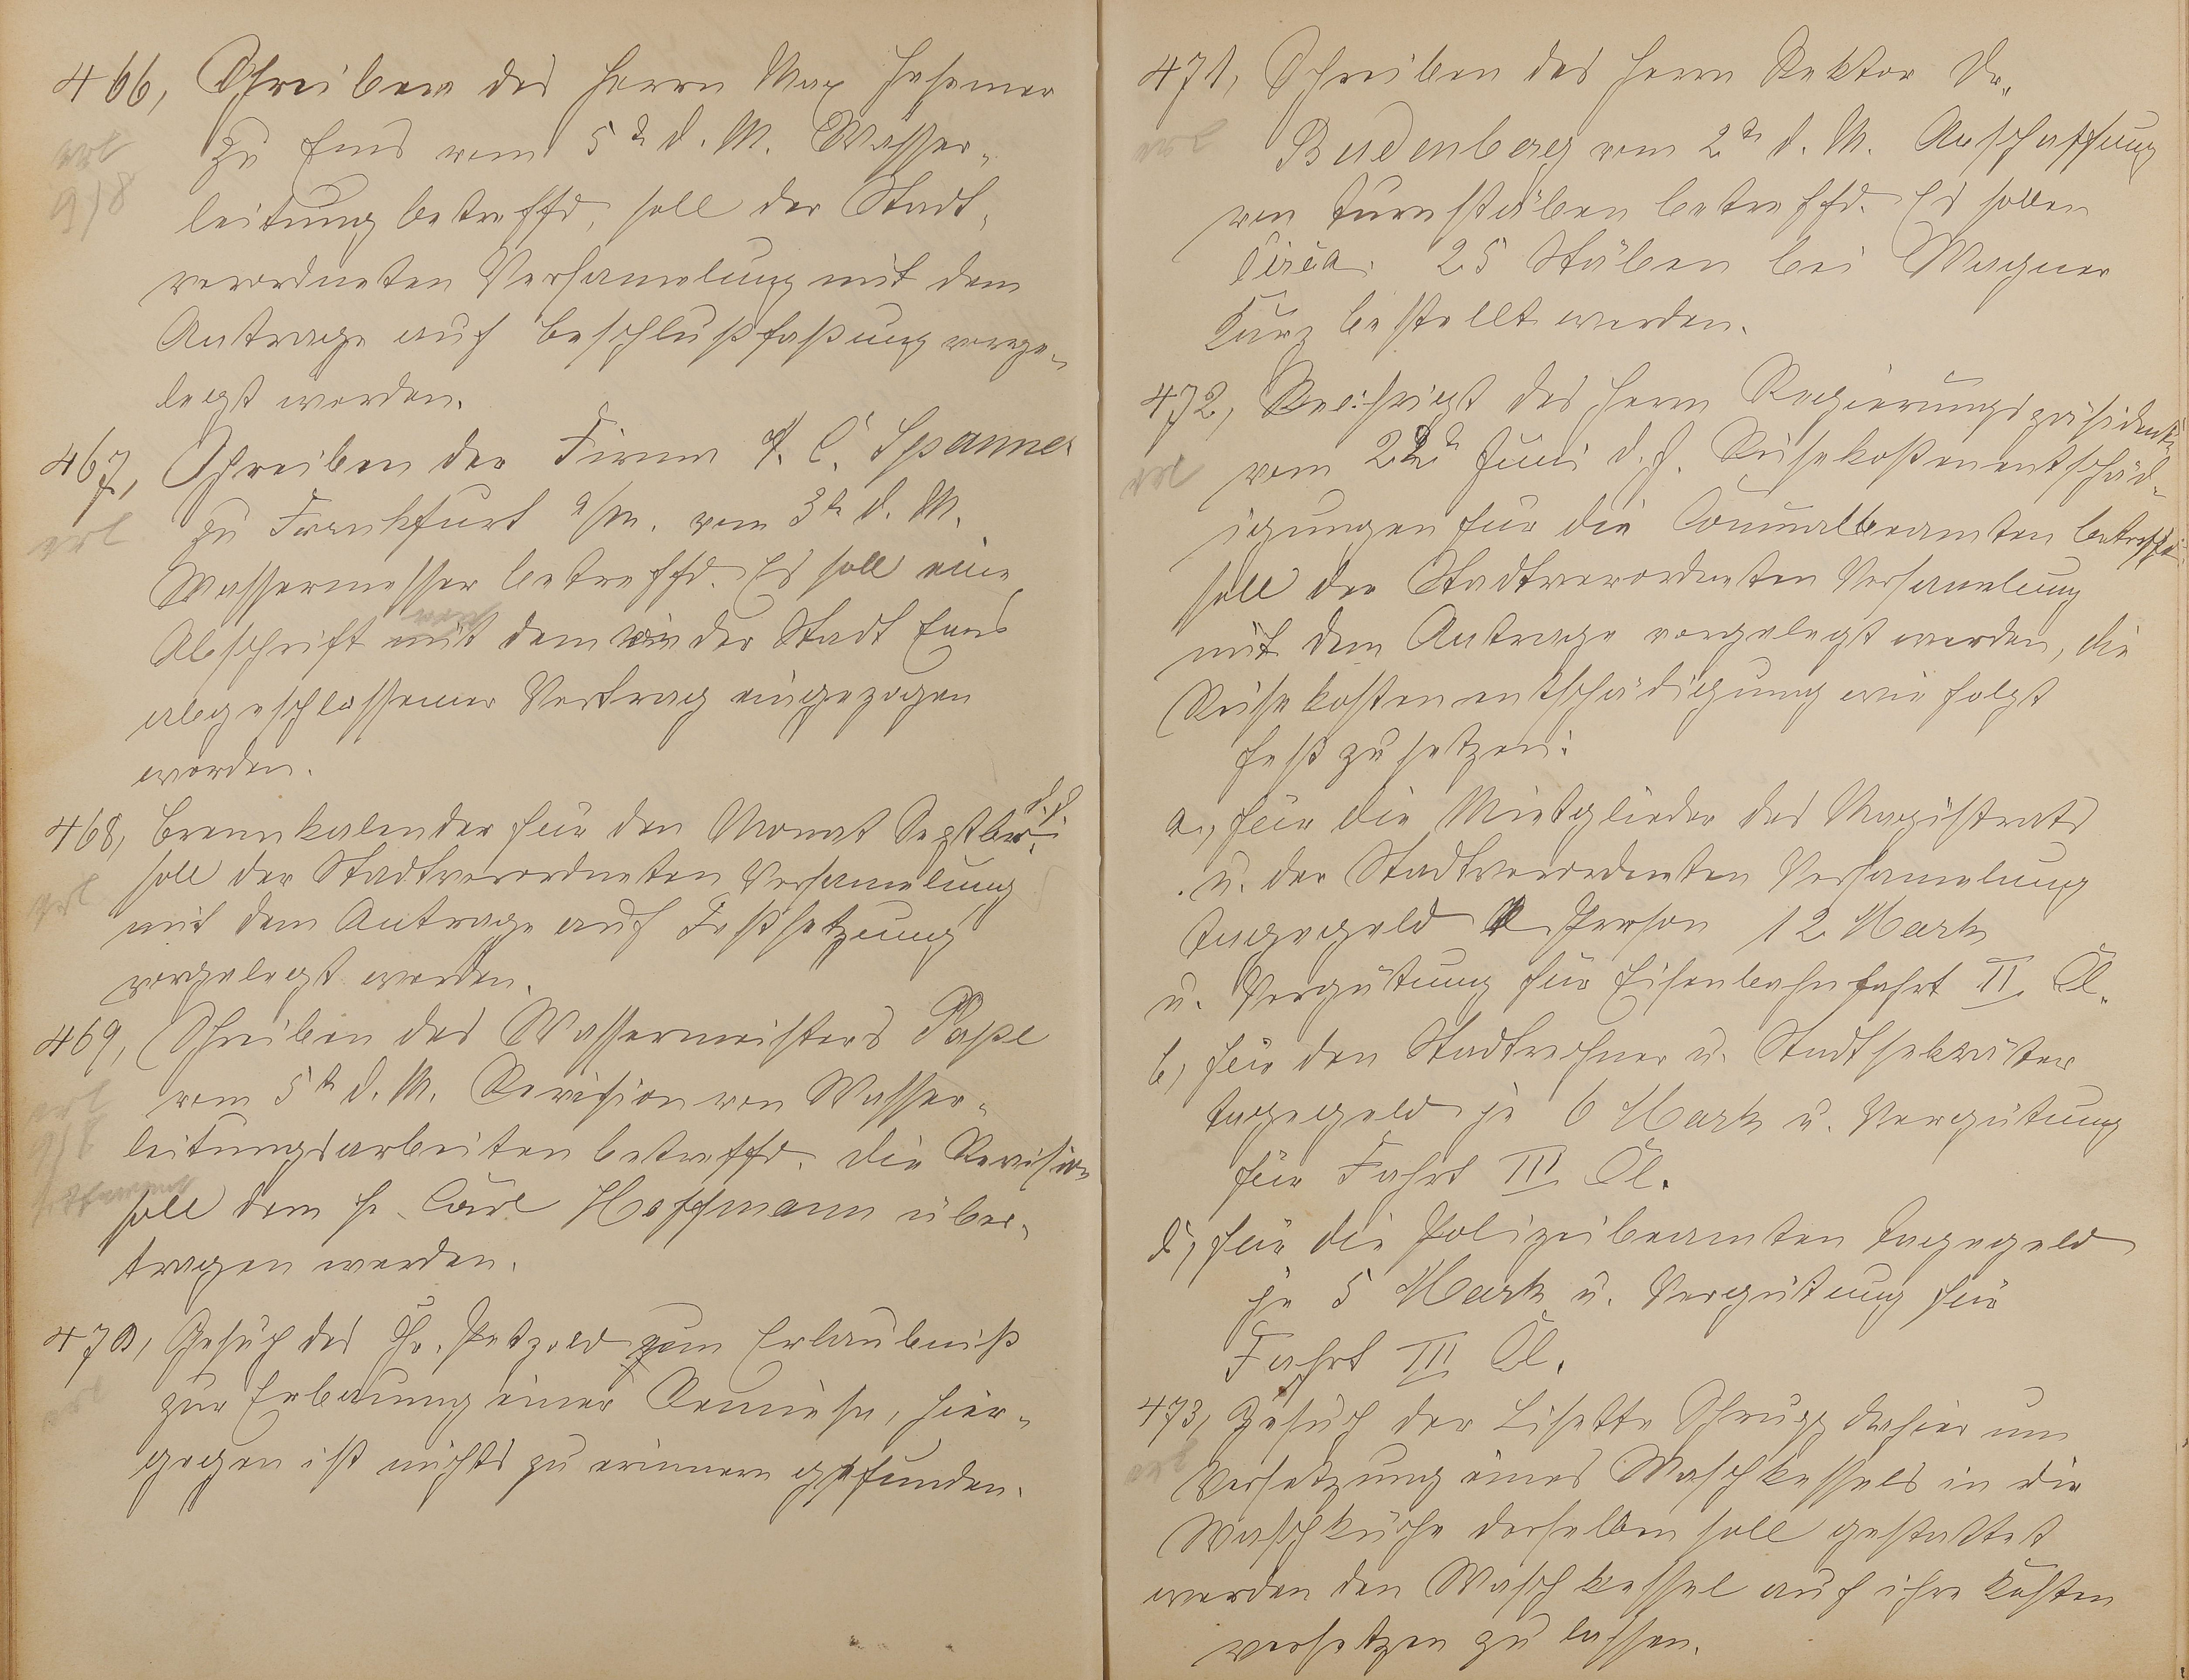 466, Schreiben des Herrn Max Hesemer
erl
zu Ems vom 5t d. M. Wasser-
9/8
leitung betreffd, soll der Stadt-
verordneten Versamelung mit dem
Antrage auf Beschlußfaßung vorge-
legt werden.
467, Schreiben der Firma A. C. Spanner
zu Frankfurt a/M. vom 3t d. M.
erl
Wassermesser betreffd. Es soll eine
Abschrift mit dem von der Stadt Ems
abgeschlossener Vertrag eingezogen
werden.
468, Brennkalender für den Monat Septber d. J.
soll der Stadtverordneten Versamelung
erl
mit dem Antrage auf Festsetzung
vorgelegt werden.
469, Schreiben des Wassermeisters Pape
vom 5t d. M. Revision von Wasser-
erl
9/8
leitungsarbeiten betreffd. die Revision
soll dem H. Carl Hoffmann über-
tragen werden.
470, Gesuch des Hr. Petzold um Erlaubniß
erl
zur Erbauung einer Remiese, hier-
gegen ist nichts zu erinnern gefunden.
471, Schreiben des Herrn Rektor Dr.
erl
Budenberg vom 2t d. M. Anschaffung
von Turnstäben betreffd. Es sollen
circa. 25 Stäben bei Wagner
Kurz bestellt werden.
472, des Herrn Regierungspräsidenten
erl
vom 22t Juni d. J. Reisekostenentschäd-
igungen für die Comunalbeamten betreffd
soll der Stadtverordneten Versamelung
mit dem Antrage vorgelegt werden, die
Reisekostenentschädigung wie folgt
fest zu setzen:
a, für die Mietglieder des Magistrats
u. der Stadtverordneten Versamelung
Tagegeld Person 12 Mark
u. Vergütung für Eisenbahnfahrt II. Cl.
b, für den Stadtrechner u. Stadtsekräter
Tagegeld je 6 Mark u. Vergütung
für Fahrt III Cl.
für die Polizeibeamten Tagegeld
je 5 Mark u. Vergütung für
Fahrt III Cl.
473, Gesuch der Lisette Schrupp dahier um
erl
Versetzung eines Waschkessels in die
Waschküche derselben soll gestattet
werden den Waschkessel auf ihre Kosten
versetzen zu lassen.